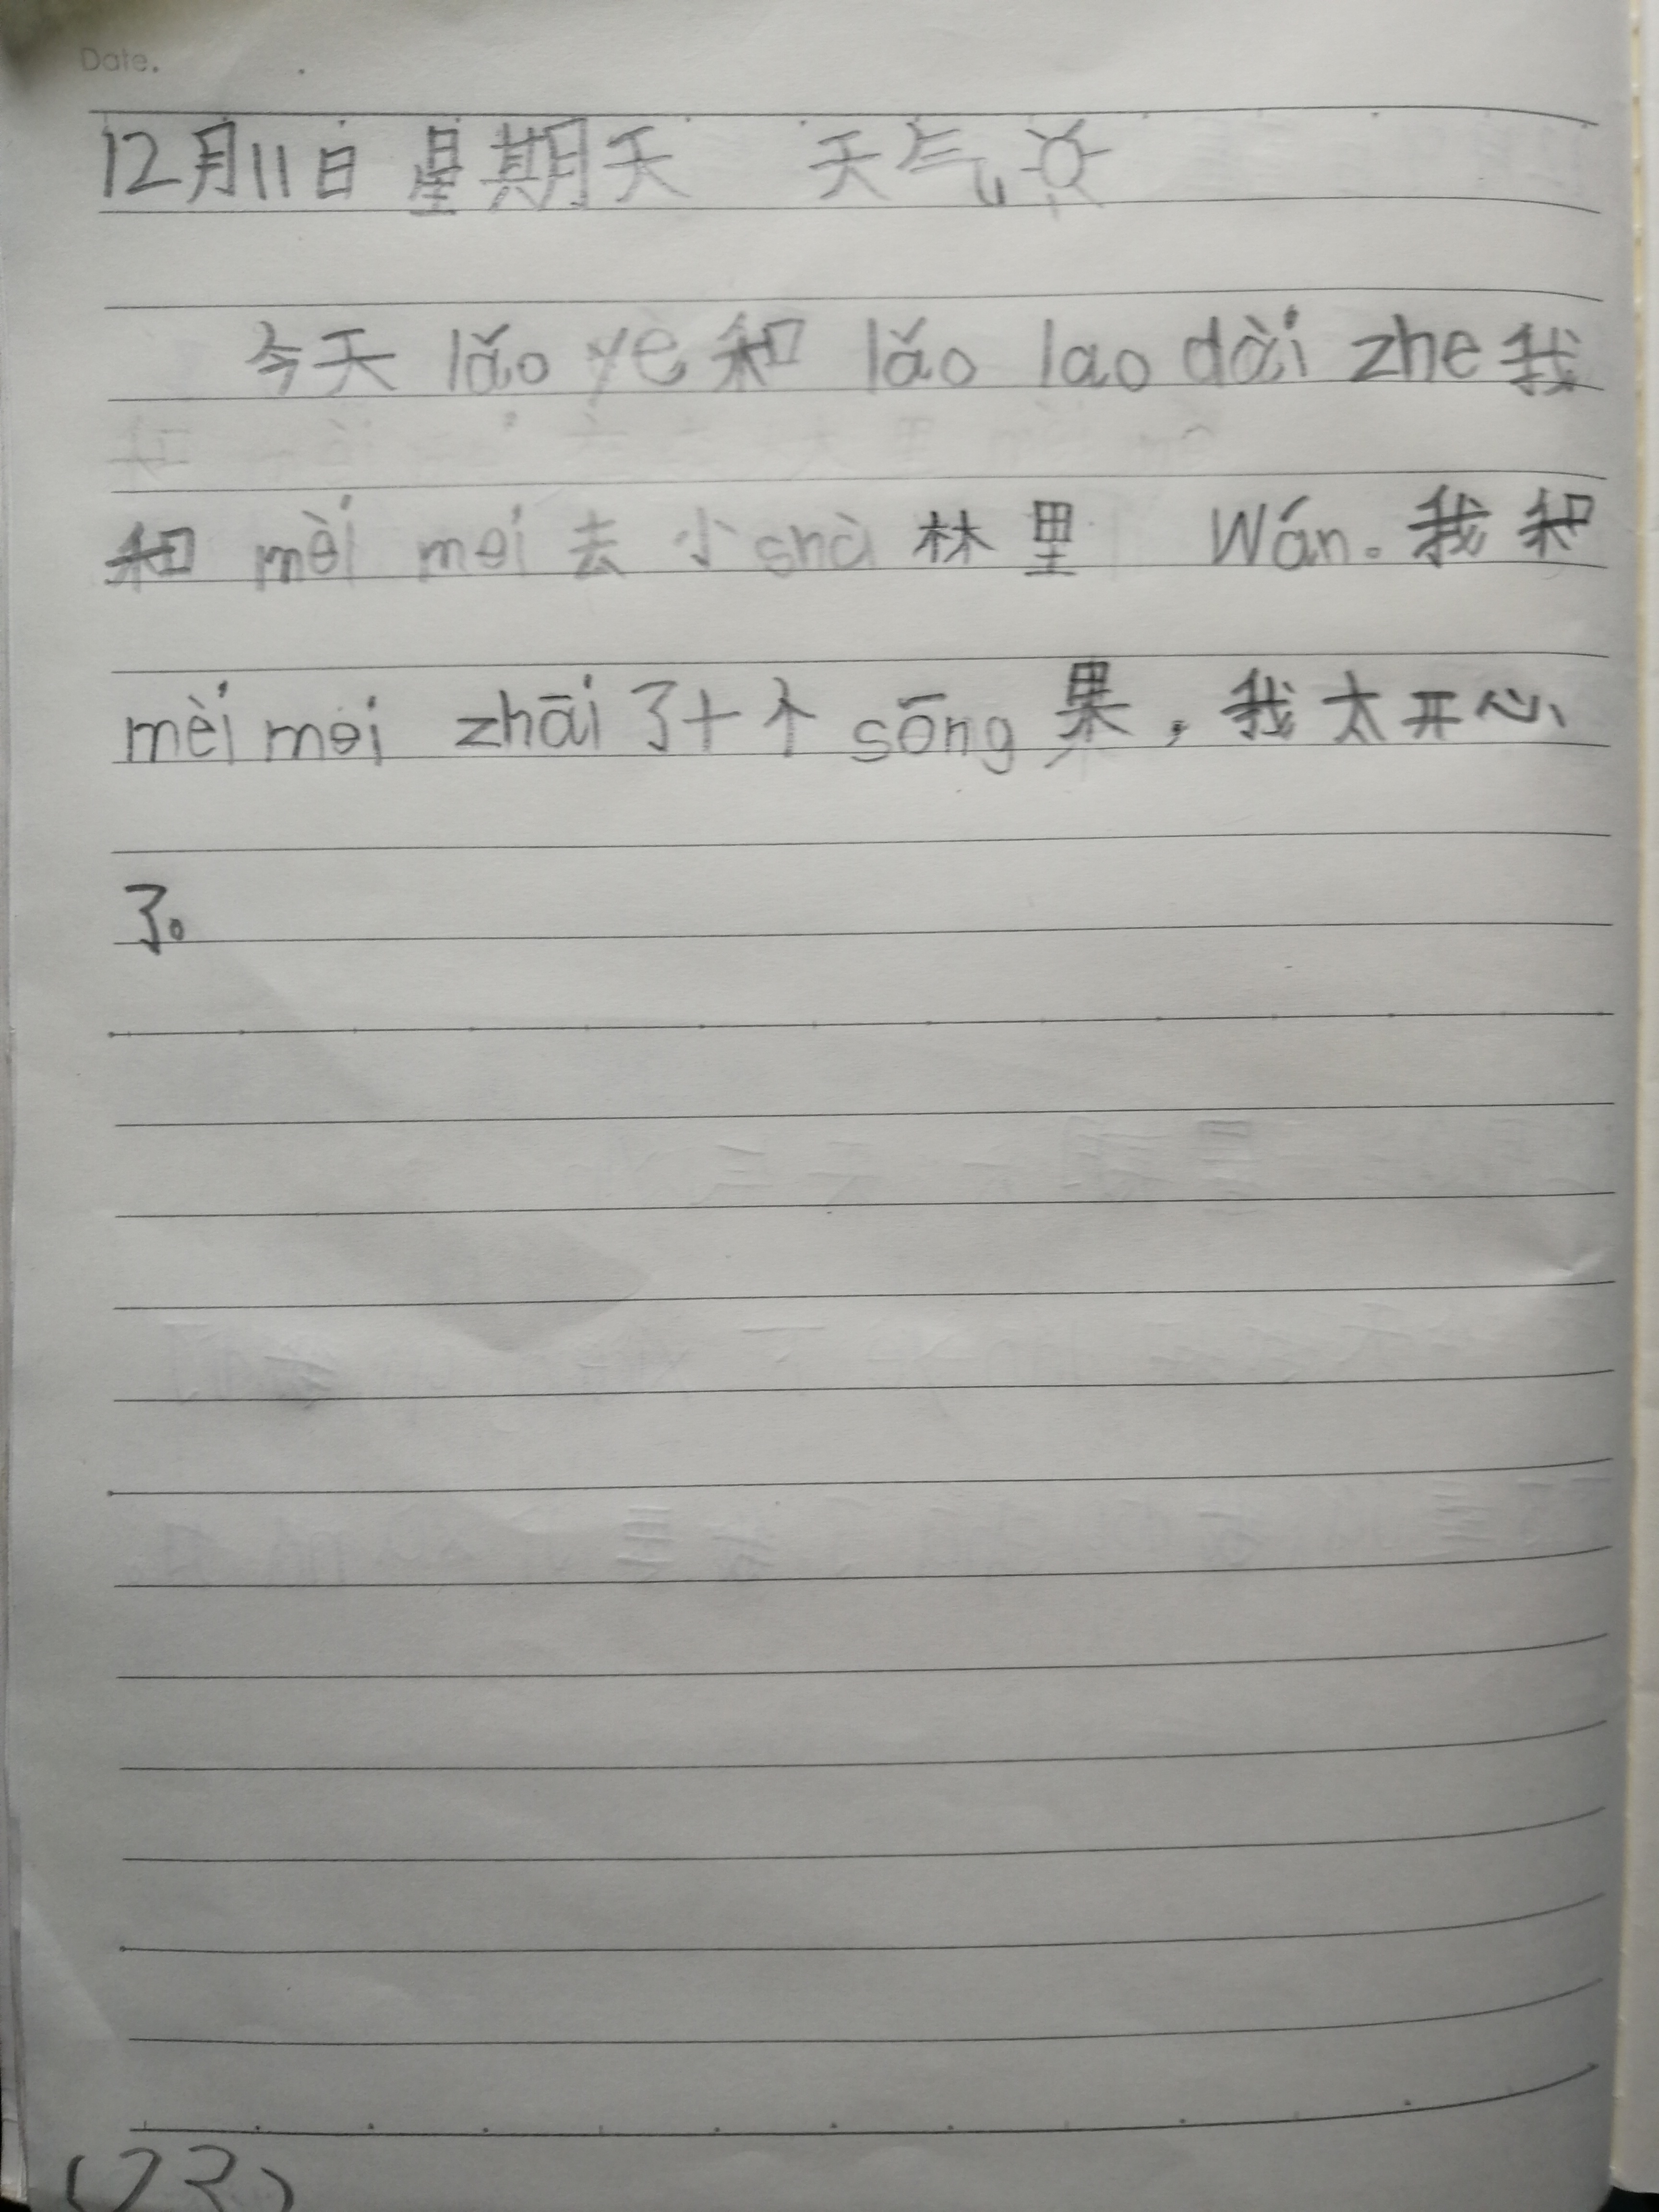 Date.
12月11日 星期天 天气☼
今天 lǎo yè 和 lǎo lao dài zhe 我
和 mèi mei 去 小 shù 林 里 Wán。我 和
mèi mei zhāi 了十个 sōng 果，我 太 开心
了。